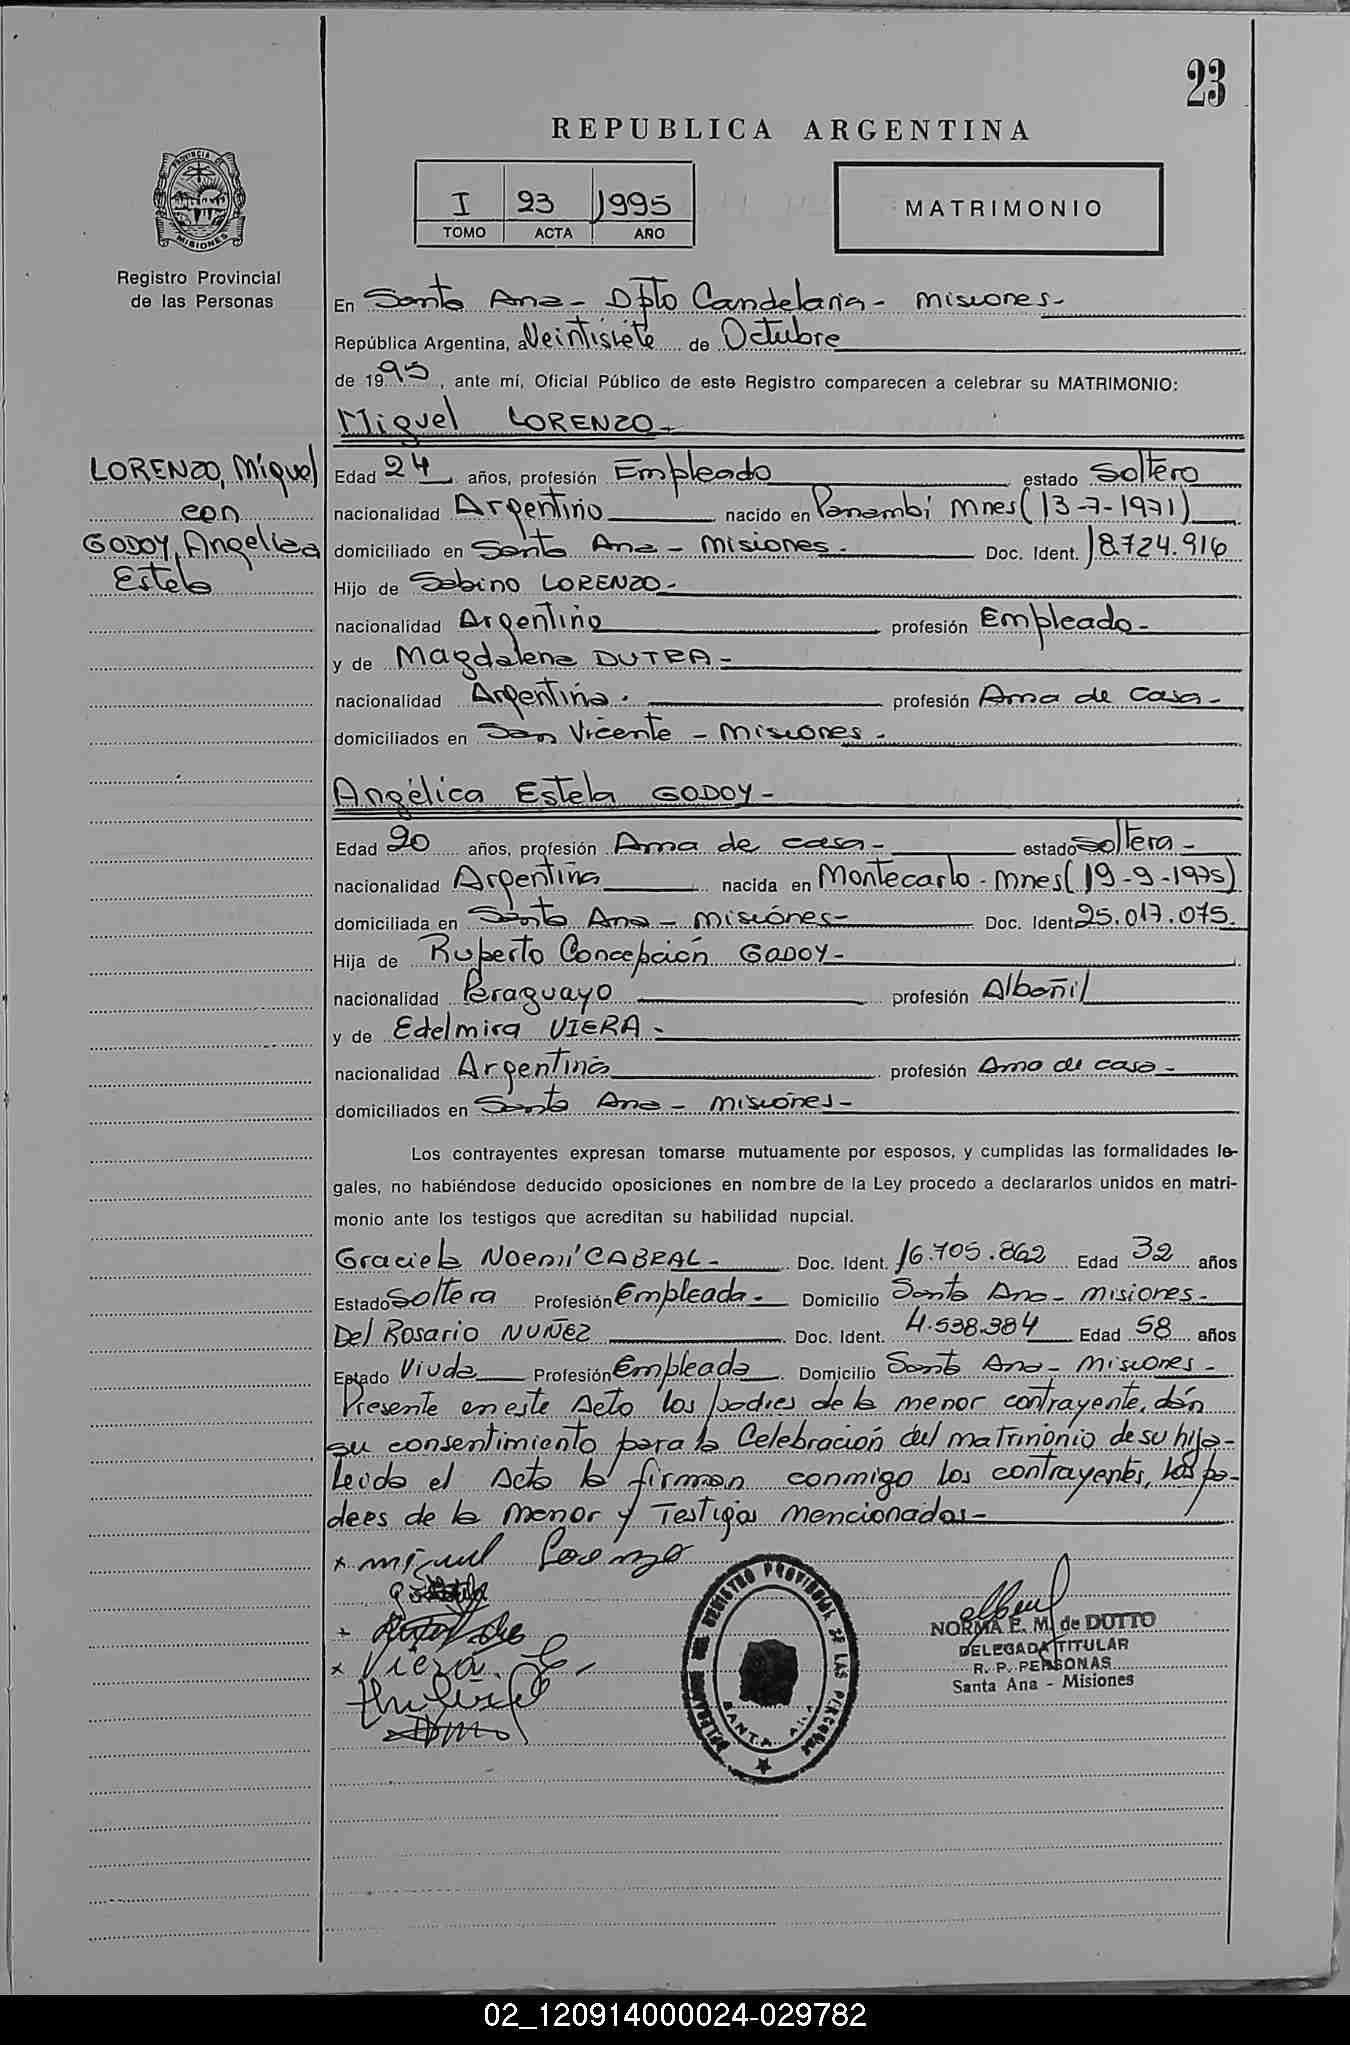 23
REPUBLICA ARGENTINA
PROVINCIA DE
MISIONES
Registro Provincial
de las Personas
I 23 1995
TOMO ACTA AÑO
MATRIMONIO
En Santa Ana - Dpto Candelaria - Misiones -
República Argentina, a Veintisiete de Octubre
de 1995, ante mí, Oficial Público de este Registro comparecen a celebrar su MATRIMONIO:
Miguel LORENZO -
LORENZO, Miguel
con
GODOY, Angelica
Estela
Edad 24 años, profesión Empleado estado Soltero
nacionalidad Argentino nacido en Panambí Mnes (13-7-1971)
domiciliado en Santa Ana - Misiones - Doc. Ident. 18.724.916
Hijo de Sabino LORENZO -
nacionalidad Argentino profesión Empleado -
y de Magdalena DUTRA -
nacionalidad Argentina - profesión Ama de Casa -
domiciliados en San Vicente - Misiones -
Angélica Estela GODOY -
Edad 20 años, profesión Ama de casa - estado Soltera -
nacionalidad Argentina nacida en Montecarlo - Mnes (19-9-1975)
domiciliada en Santa Ana - Misiones - Doc. Ident 25.017.075.
Hija de Ruperto Concepción GODOY -
nacionalidad Paraguayo profesión Albañil
y de Edelmira VIERA -
nacionalidad Argentina profesión Ama de casa -
domiciliados en Santa Ana - Misiones -
Los contrayentes expresan tomarse mutuamente por esposos, y cumplidas las formalidades le-
gales, no habiéndose deducido oposiciones en nombre de la Ley procedo a declararlos unidos en matri-
monio ante los testigos que acreditan su habilidad nupcial.
Graciela Noemí CABRAL - Doc. Ident. 16.705.862 Edad 32 años
Estado Soltera Profesión Empleada - Domicilio Santa Ana - Misiones -
Del Rosario NUÑEZ Doc. Ident. 4.538.384 Edad 58 años
Estado Viuda Profesión Empleada Domicilio Santa Ana - Misiones -
Presente en este Acto los padres de la menor contrayente, dán
su consentimiento para la Celebración del matrimonio de su hija -
Leida el Acta la firman conmigo los contrayentes, los pa-
dres de la menor y Testigos mencionados -
x miguel Lorenzo
x Viera. E.
DELEGACION DEL REGISTRO PROVINCIAL DE LAS PERSONAS
SANTA ANA
NORMA E. M. de DUTTO
DELEGADA TITULAR
R. P. PERSONAS
Santa Ana - Misiones
02_120914000024-029782